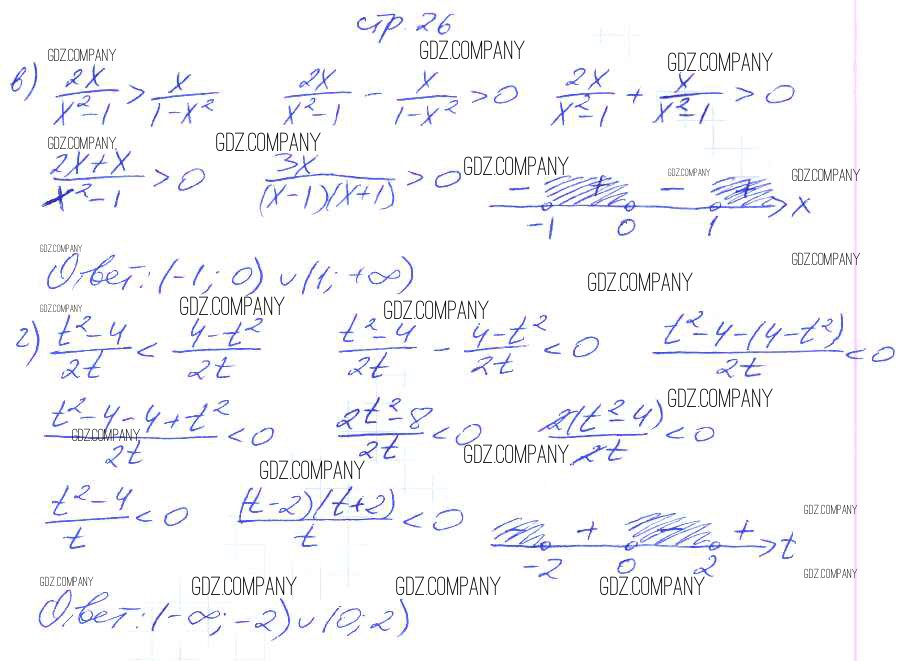 стр. 26
GDZ.COMPANY GDZ.COMPANY GDZ.COMPANY
в) 2x/(x²-1) > x/(1-x²) 2x/(x²-1) - x/(1-x²) > 0 2x/(x²-1) + x/(x²-1) > 0
GDZ.COMPANY GDZ.COMPANY GDZ.COMPANY GDZ.COMPANY GDZ.COMPANY
(2x+x)/(x²-1) > 0 3x/((x-1)(x+1)) > 0 - + - + x
-1 0 1
GDZ.COMPANY GDZ.COMPANY
Ответ: (-1; 0) ∪ (1; +∞) GDZ.COMPANY
GDZ.COMPANY GDZ.COMPANY GDZ.COMPANY
г) (t²-4)/2t < (4-t²)/2t (t²-4)/2t - (4-t²)/2t < 0 (t²-4-(4-t²))/2t < 0
GDZ.COMPANY
(t²-4-4+t²)/2t < 0 (2t²-8)/2t < 0 2(t²-4)/2t < 0
GDZ.COMPANY GDZ.COMPANY GDZ.COMPANY
(t²-4)/t < 0 ((t-2)(t+2))/t < 0 - + - + t
GDZ.COMPANY
-2 0 2
GDZ.COMPANY GDZ.COMPANY GDZ.COMPANY GDZ.COMPANY GDZ.COMPANY
Ответ: (-∞; -2) ∪ (0; 2)